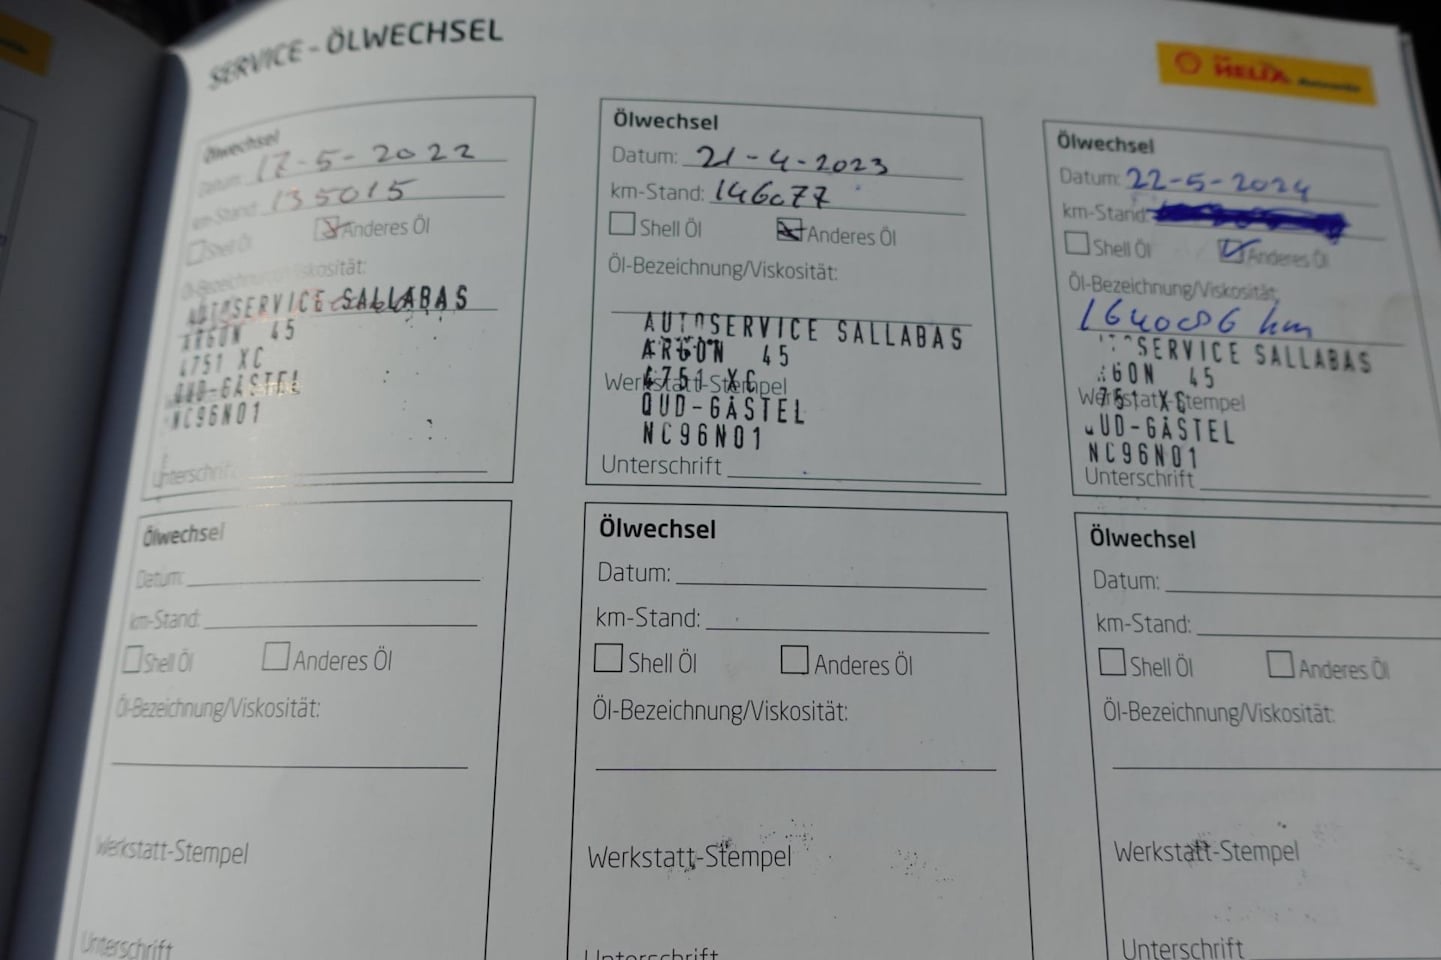 SERVICE - ÖLWECHSEL
HELIX
Ölwechsel
Datum: 17-5-2022
km-Stand: 135015
Shell Öl Anderes Öl
Öl-Bezeichnung/Viskosität:
AUTOSERVICE SALLABAS
ARGON 45
4751 XC
OUD-GASTEL
NC96N01
Unterschrift
Ölwechsel
Datum: 21-4-2023
km-Stand: 146077
Shell Öl Anderes Öl
Öl-Bezeichnung/Viskosität:
AUTOSERVICE SALLABAS
ARGON 45
Werkstatt-Stempel
4751 XC
OUD-GASTEL
NC96N01
Unterschrift
Ölwechsel
Datum: 22-5-2024
km-Stand:
Shell Öl Anderes Öl
Öl-Bezeichnung/Viskosität:
km
SERVICE SALLABAS
GON 45
Werkstatt-Stempel
751 XC
UD-GASTEL
NC96N01
Unterschrift
Ölwechsel
Datum:
km-Stand:
Shell Öl Anderes Öl
Öl-Bezeichnung/Viskosität:
Werkstatt-Stempel
Unterschrift
Ölwechsel
Datum:
km-Stand:
Shell Öl Anderes Öl
Öl-Bezeichnung/Viskosität:
Werkstatt-Stempel
Unterschrift
Ölwechsel
Datum:
km-Stand:
Shell Öl Anderes Öl
Öl-Bezeichnung/Viskosität:
Werkstatt-Stempel
Unterschrift